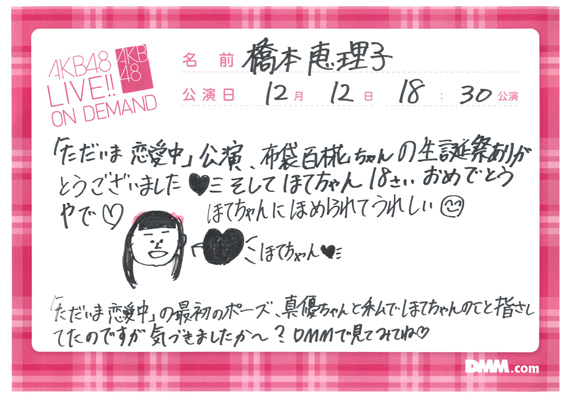 AKB48
LIVE!!
ON DEMAND
AKB
48
名前 橋本恵理子
公演日 12月 12日 18:30 公演
「ただいま 恋愛中」公演、布袋百椛ちゃんの生誕祭ありが
とうございました♥ミ そして ほてちゃん 18さい おめでとう
やで♡ ほてちゃんにほめられてうれしい☺
ほてちゃん♥ミ
「ただいま 恋愛中」の最初のポーズ、真優ちゃんと私でほてちゃんのこと指さし
てたのですが 気づきましたかへ? DMMで見てみてね♡
DMM.com